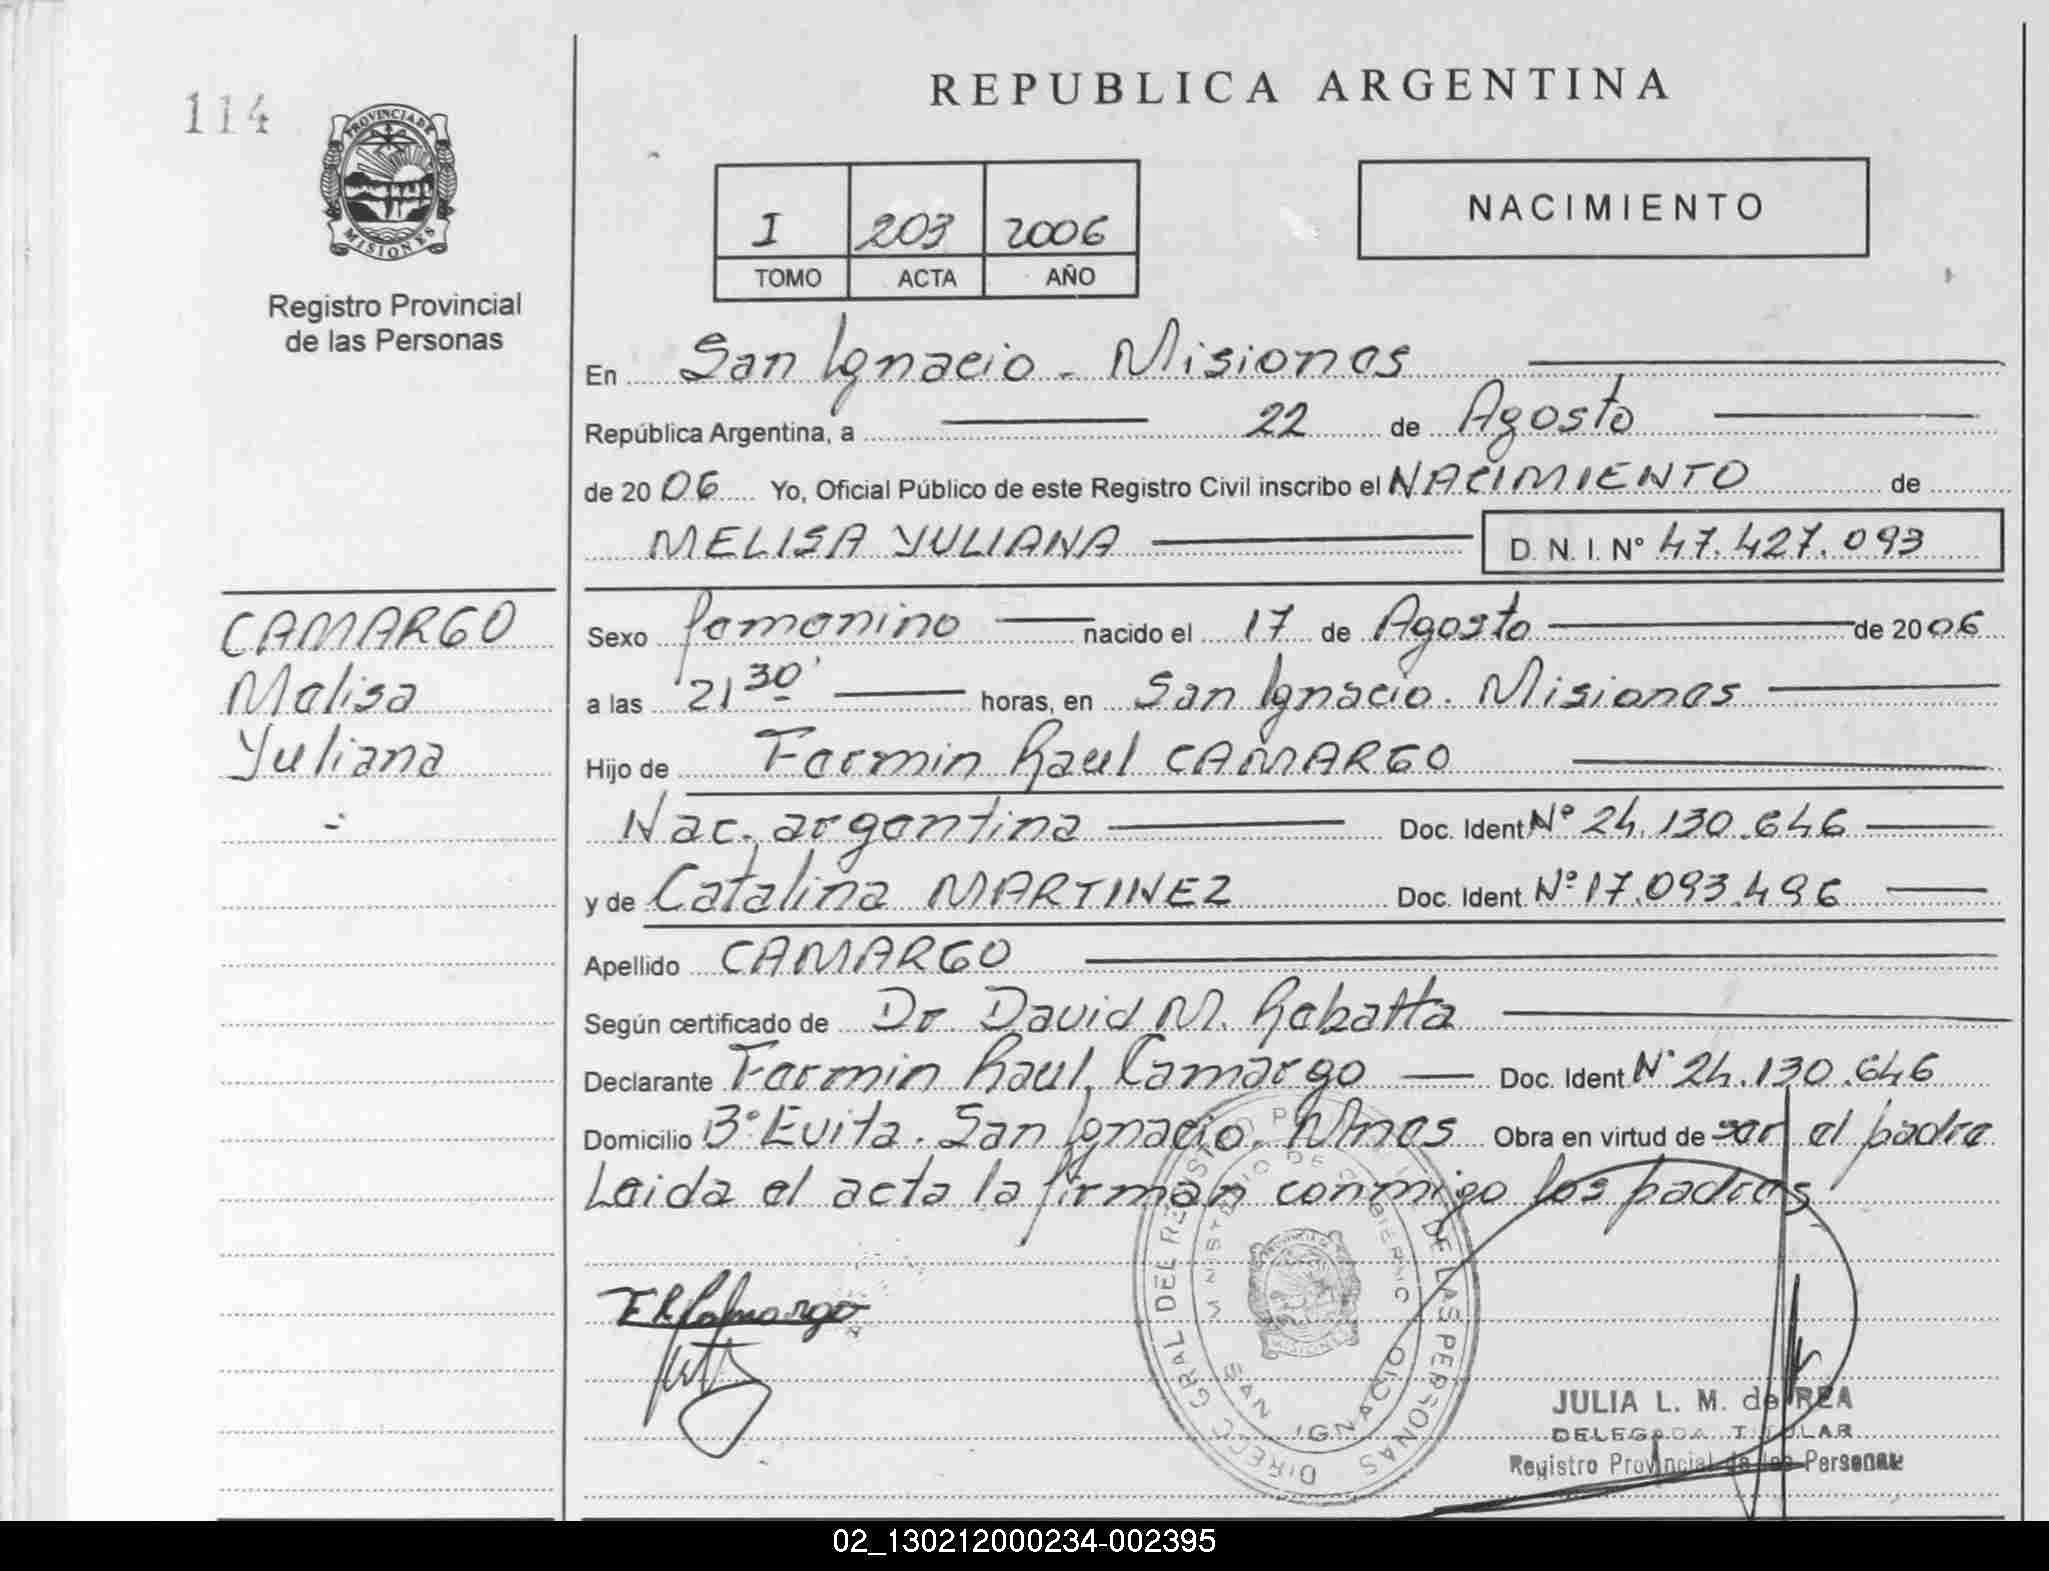 114
PROVINCIA DE
MISIONES
Registro Provincial
de las Personas
REPUBLICA ARGENTINA
I 203 2006
TOMO ACTA AÑO
NACIMIENTO
En San Ignacio - Misiones
República Argentina, a 22 de Agosto
de 2006 Yo, Oficial Público de este Registro Civil inscribo el NACIMIENTO de
MELISA YULIANA D. N. I. Nº 47.427.093
CAMARGO
Melisa
Yuliana
Sexo femenino nacido el 17 de Agosto de 2006
a las 21 30' horas, en San Ignacio. Misiones
Hijo de Fermin Raul CAMARGO
Nac. argentina Doc. Ident Nº 24.130.646
y de Catalina MARTINEZ Doc. Ident. Nº 17.093.496
Apellido CAMARGO
Según certificado de Dr David M. Rebatta
Declarante Fermin Raul Camargo Doc. Ident N° 24.130.646
Domicilio Bº Evita. San Ignacio. Mnes Obra en virtud de ser el padre
Leida el acta la firman conmigo los padres
DIRECC GRAL DEL REGISTRO DE LAS PERSONAS
MINISTERIO DE GOBIERNO
SAN IGNACIO
MISIONES
F R Camargo
JULIA L. M. de REA
DELEGADA TITULAR
Registro Provincial de las Personas
02_130212000234-002395